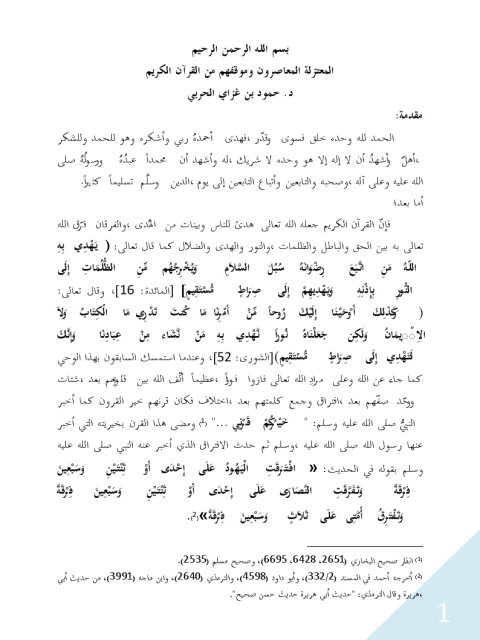 بسم الله الرحمن الرحيم
المعتزلة المعاصرون وموقفهم من القرآن الكريم
د. حمود بن غزاي الحربي
مقدمة:
الحمد لله وحده خلق فسوى وقدّر ،فهدى أحمدهُ ربي وأشكره وهو للحمد وللشكر
،أهلٌ وأشهدُ أن لا إله إلا هو وحده لا شريك ،له وأشهد أن محمداً عبدُهُ ورسولُهُ صلى
الله عليه وعلى آله ،وصحبه والتابعين وأتباع التابعين إلى يوم ،الدين وسلَّم تسليماً كثيراً.
أما بعد؛
فإنَّ القرآن الكريم جعله الله تعالى هدىً للناس وبينات من الهدى ،والفرقان فرّق الله
تعالى به بين الحق والباطل والظلمات ،والنور والهدى والضلال كما قال تعالى: ( يَهْدِي بِهِ
اللَّهُ مَنِ اتَّبَعَ رِضْوَانَهُ سُبُلَ السَّلَامِ وَيُخْرِجُهُم مِّنِ الظُّلُمَاتِ إِلَى
النُّورِ بِإِذْنِهِ وَيَهْدِيهِمْ إِلَى صِرَاطٍ مُّسْتَقِيمٍ] [المائدة: 16]، وقال تعالى:
( كَذَلِكَ أَوْحَيْنَا إِلَيْكَ رُوحاً مِّنْ أَمْرِنَا مَا كُنتَ تَدْرِي مَا الْكِتَابُ وَلَا
الإِيمَانُ وَلَكِن جَعَلْنَاهُ نُوراً نَّهْدِي بِهِ مَنْ نَّشَاء مِنْ عِبَادِنَا وَإِنَّكَ
لَتَهْدِي إِلَى صِرَاطٍ مُّسْتَقِيمٍ)[الشورى: 52]، وعندما استمسك السابقون بهذا الوحي
كما جاء عن الله وعلى مراد الله تعالى فازوا فوزاً ،عظيماً ألَّف الله بين قلوبهم بعد ،شتات
ووحّد صفّهم بعد ،افتراق وجمع كلمتهم بعد ،اختلاف فكان قرنهم خير القرون كما أخبر
النبيُّ صلى الله عليه وسلم: " خَيْرُكُمْ قَرْنِي ..." (1) ومضى هذا القرن بخيريته التي أخبر
عنها رسول الله صلى الله عليه ،وسلم ثم حدث الافتراق الذي أخبر عنه النبي صلى الله عليه
وسلم بقوله في الحديث: « افْتَرَقَتِ الْيَهُودُ عَلَى إِحْدَى أَوْ ثِنْتَيْنِ وَسَبْعِينَ
فِرْقَةً وَتَفَرَّقَتِ النَّصَارَى عَلَى إِحْدَى أَوْ ثِنْتَيْنِ وَسَبْعِينَ فِرْقَةً
وَتَفْتَرِقُ أُمَّتِي عَلَى ثَلَاثٍ وَسَبْعِينَ فِرْقَةً»(2).
(1) انظر صحيح البخاري (2651، 6428، 6695)، وصحيح مسلم (2535).
(2) أخرجه أحمد في المسند (332/2)، وأبو داود (4598)، والترمذي (2640)، وابن ماجه (3991)، من حديث أبي
،هريرة وقال الترمذي: "حديث أبي هريرة حديث حسن صحيح".
1